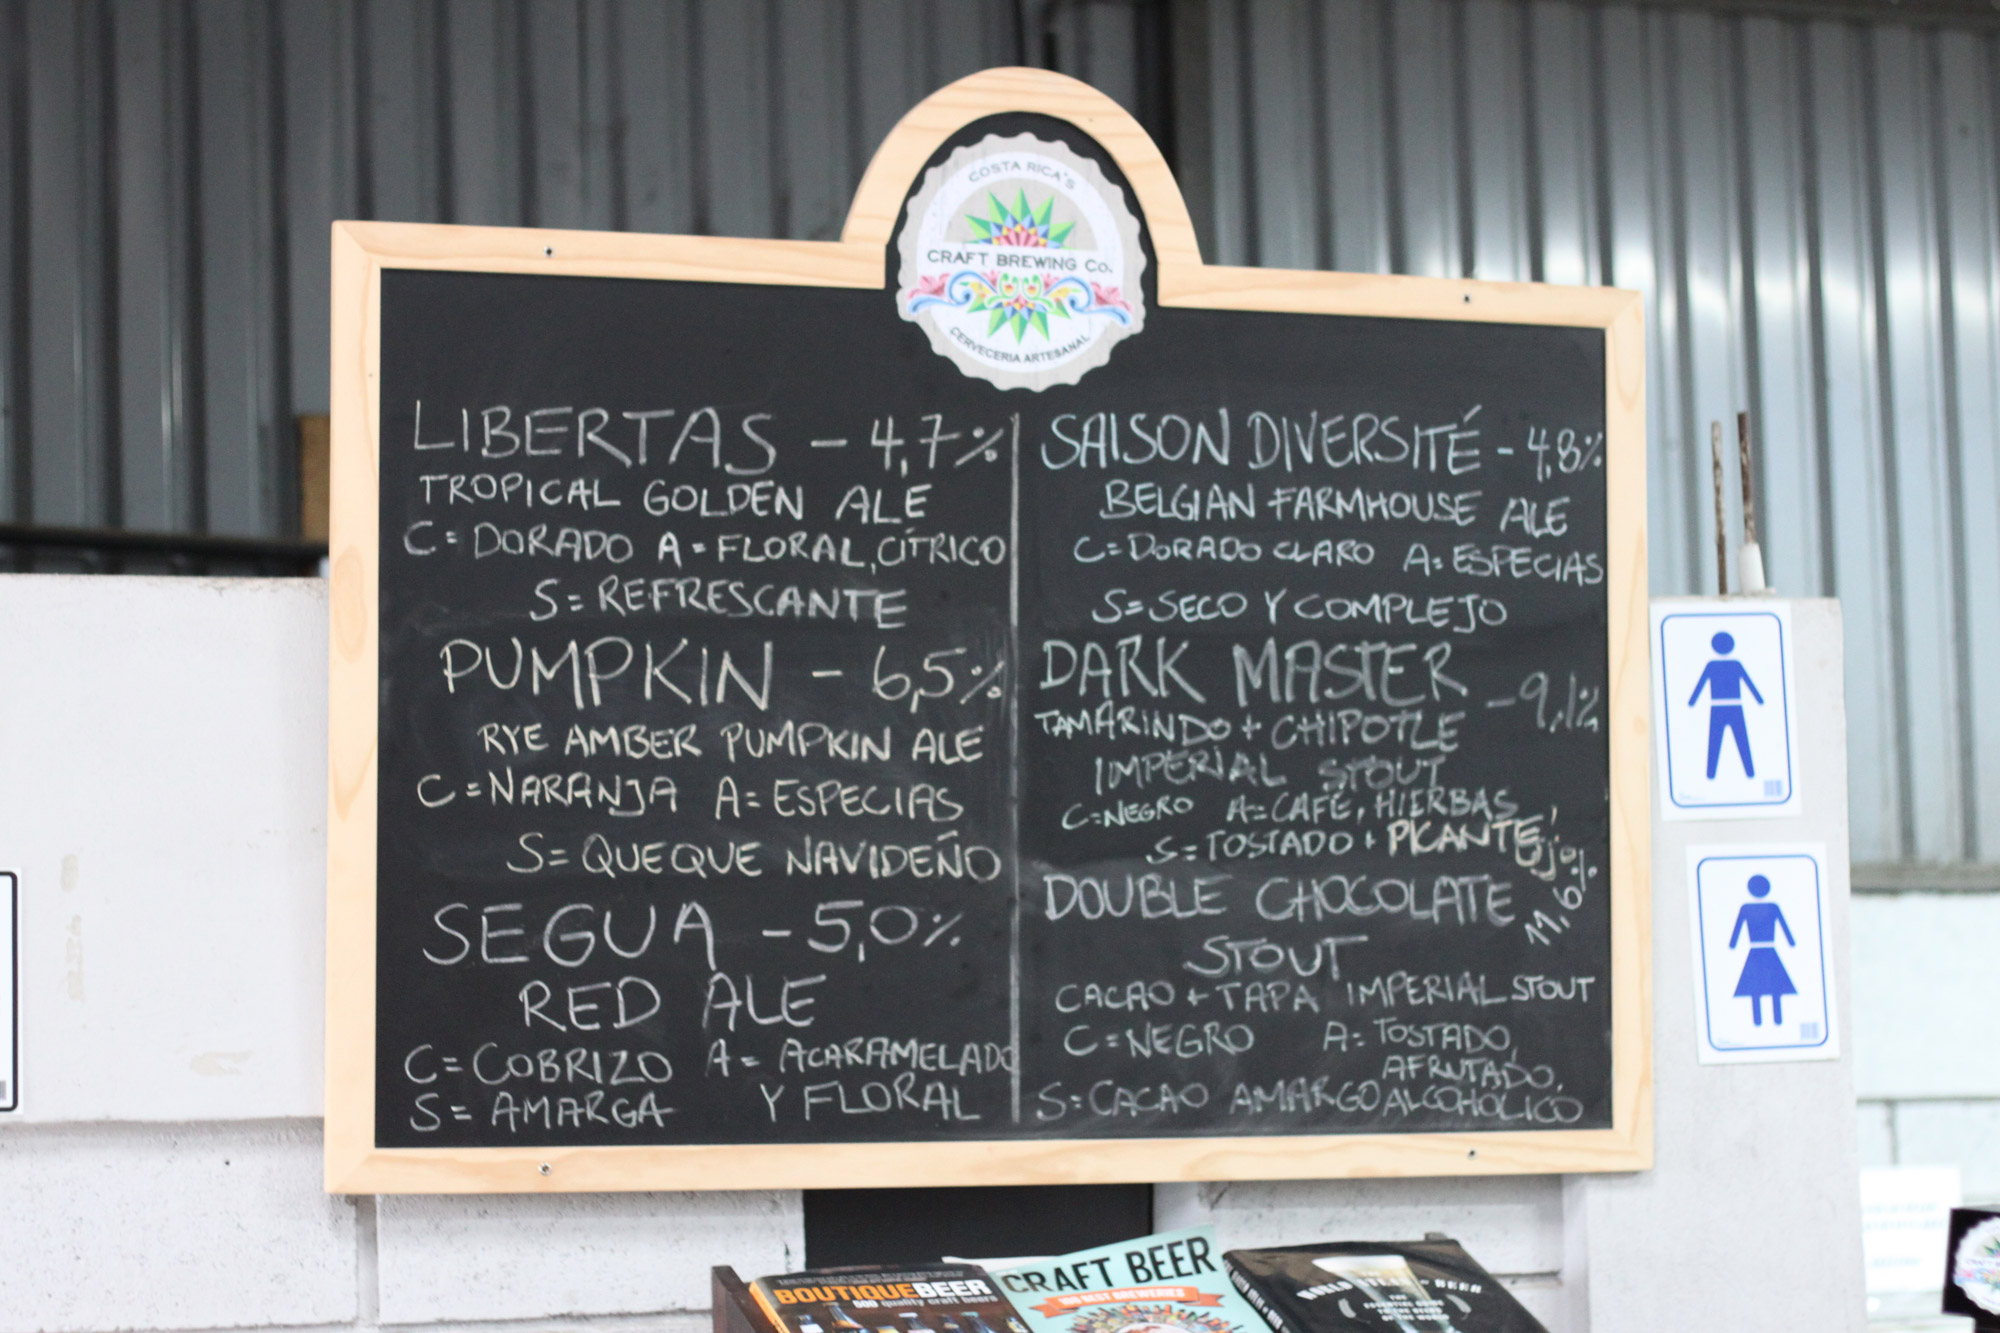 COSTA RICA'S
CRAFT BREWING Co.
CERVECERIA ARTESANAL
LIBERTAS - 4,7%
TROPICAL GOLDEN ALE
C= DORADO A= FLORAL, CÍTRICO
S= REFRESCANTE
PUMPKIN - 6,5%
RYE AMBER PUMPKIN ALE
C=NARANJA A=ESPECIAS
S= QUEQUE NAVIDEÑO
SEGUA - 5,0%
RED ALE
C= COBRIZO A= ACARAMELADO
Y FLORAL
S= AMARGA
SAISON DIVERSITÉ - 4,8%
BELGIAN FARMHOUSE ALE
C=DORADO CLARO A=ESPECIAS
S=SECO Y COMPLEJO
DARK MASTER - 9,1%
TAMARINDO + CHIPOTLE
IMPERIAL STOUT
C=NEGRO A=CAFÉ, HIERBAS,
S=TOSTADO + PICANTE
DOUBLE CHOCOLATE 11,6%
STOUT
CACAO + TAPA IMPERIAL STOUT
C=NEGRO A=TOSTADO,
AFRUTADO,
S=CACAO AMARGO ALCOHÓLICO
BOUTIQUE BEER
500 quality craft beers
CRAFT BEER
100 BEST BREWERIES
WORLD ATLAS OF BEER
THE
ESSENTIAL GUIDE
TO THE BEERS
OF THE WORLD